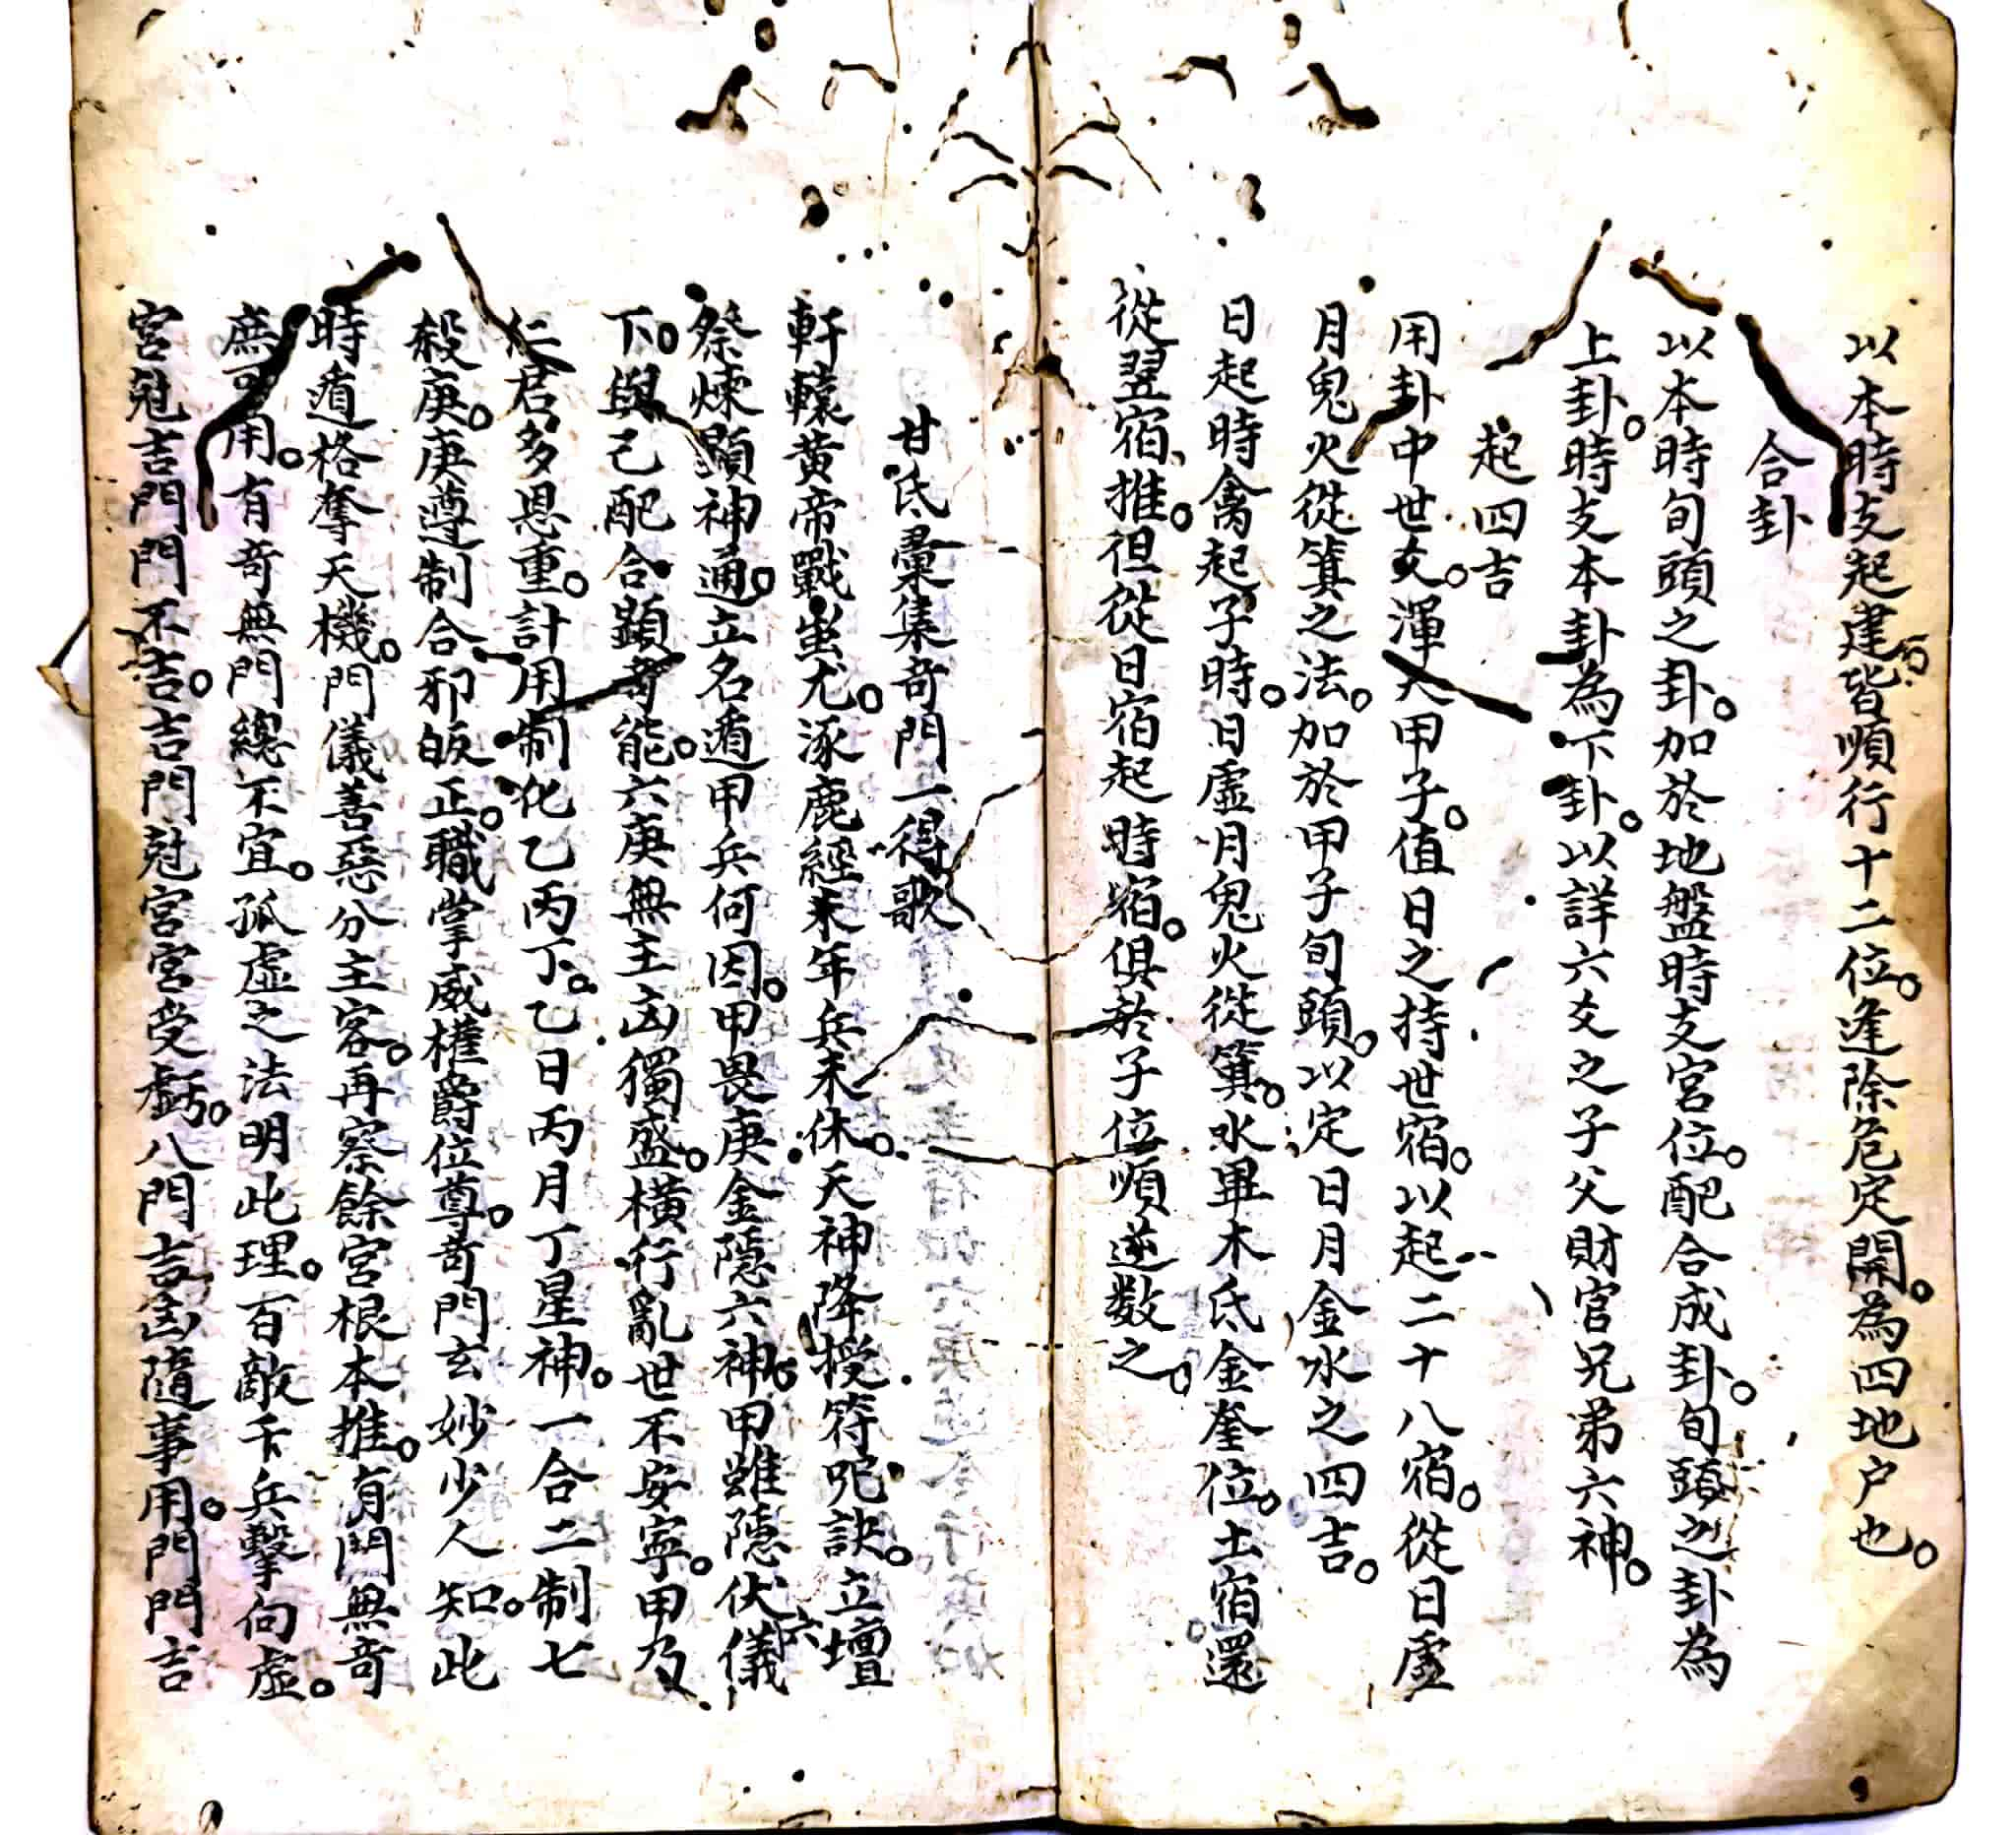 以本時支起建皆順行十二位。逢除危定開。為四地户也。
合卦
以本時旬頭之卦。加於地盤時支宮位。配合成卦。旬頭之卦為
上卦。時支本卦為下卦。以詳六爻之子父財官兄弟六神。
起四吉
用卦中世爻。渾天甲子。值日之持世宿。以起二十八宿。從日虛
月鬼火從箕之法。加於甲子旬頭。以定日月金水之四吉。
日起時禽起子時。日虛月鬼火從箕。水畢木氐金奎位。土宿還
從翌宿推。但從日宿起時宿。俱於子位順逆数之。
甘氏彙集奇門一得歌
軒轅黄帝戰蚩尤。涿鹿經末年兵未休。天神降授符呪訣。立壇
祭煉顕神通。立名遁甲兵何因。甲畏庚金隱六神。甲雖隱伏六儀
下。與己配合顕奇能。六庚無主凶獨盛。橫行亂世不安寧。甲乃
仁君多恩重。計用制化乙丙丁。乙日丙月丁星神。一合二制七
殺庚。庚遵制合邪皈正。職掌威權爵位尊。奇門玄妙少人知。此
時遁格奪天機。門儀善惡分主客。再察餘宮根本推。有門無奇
庶可用。有奇無門總不宜。孤虛之法明此理。百敵千兵擊向虛。
宮尅吉門門不吉。吉門尅宮宮受虧。八門吉凶隨事用。門門吉